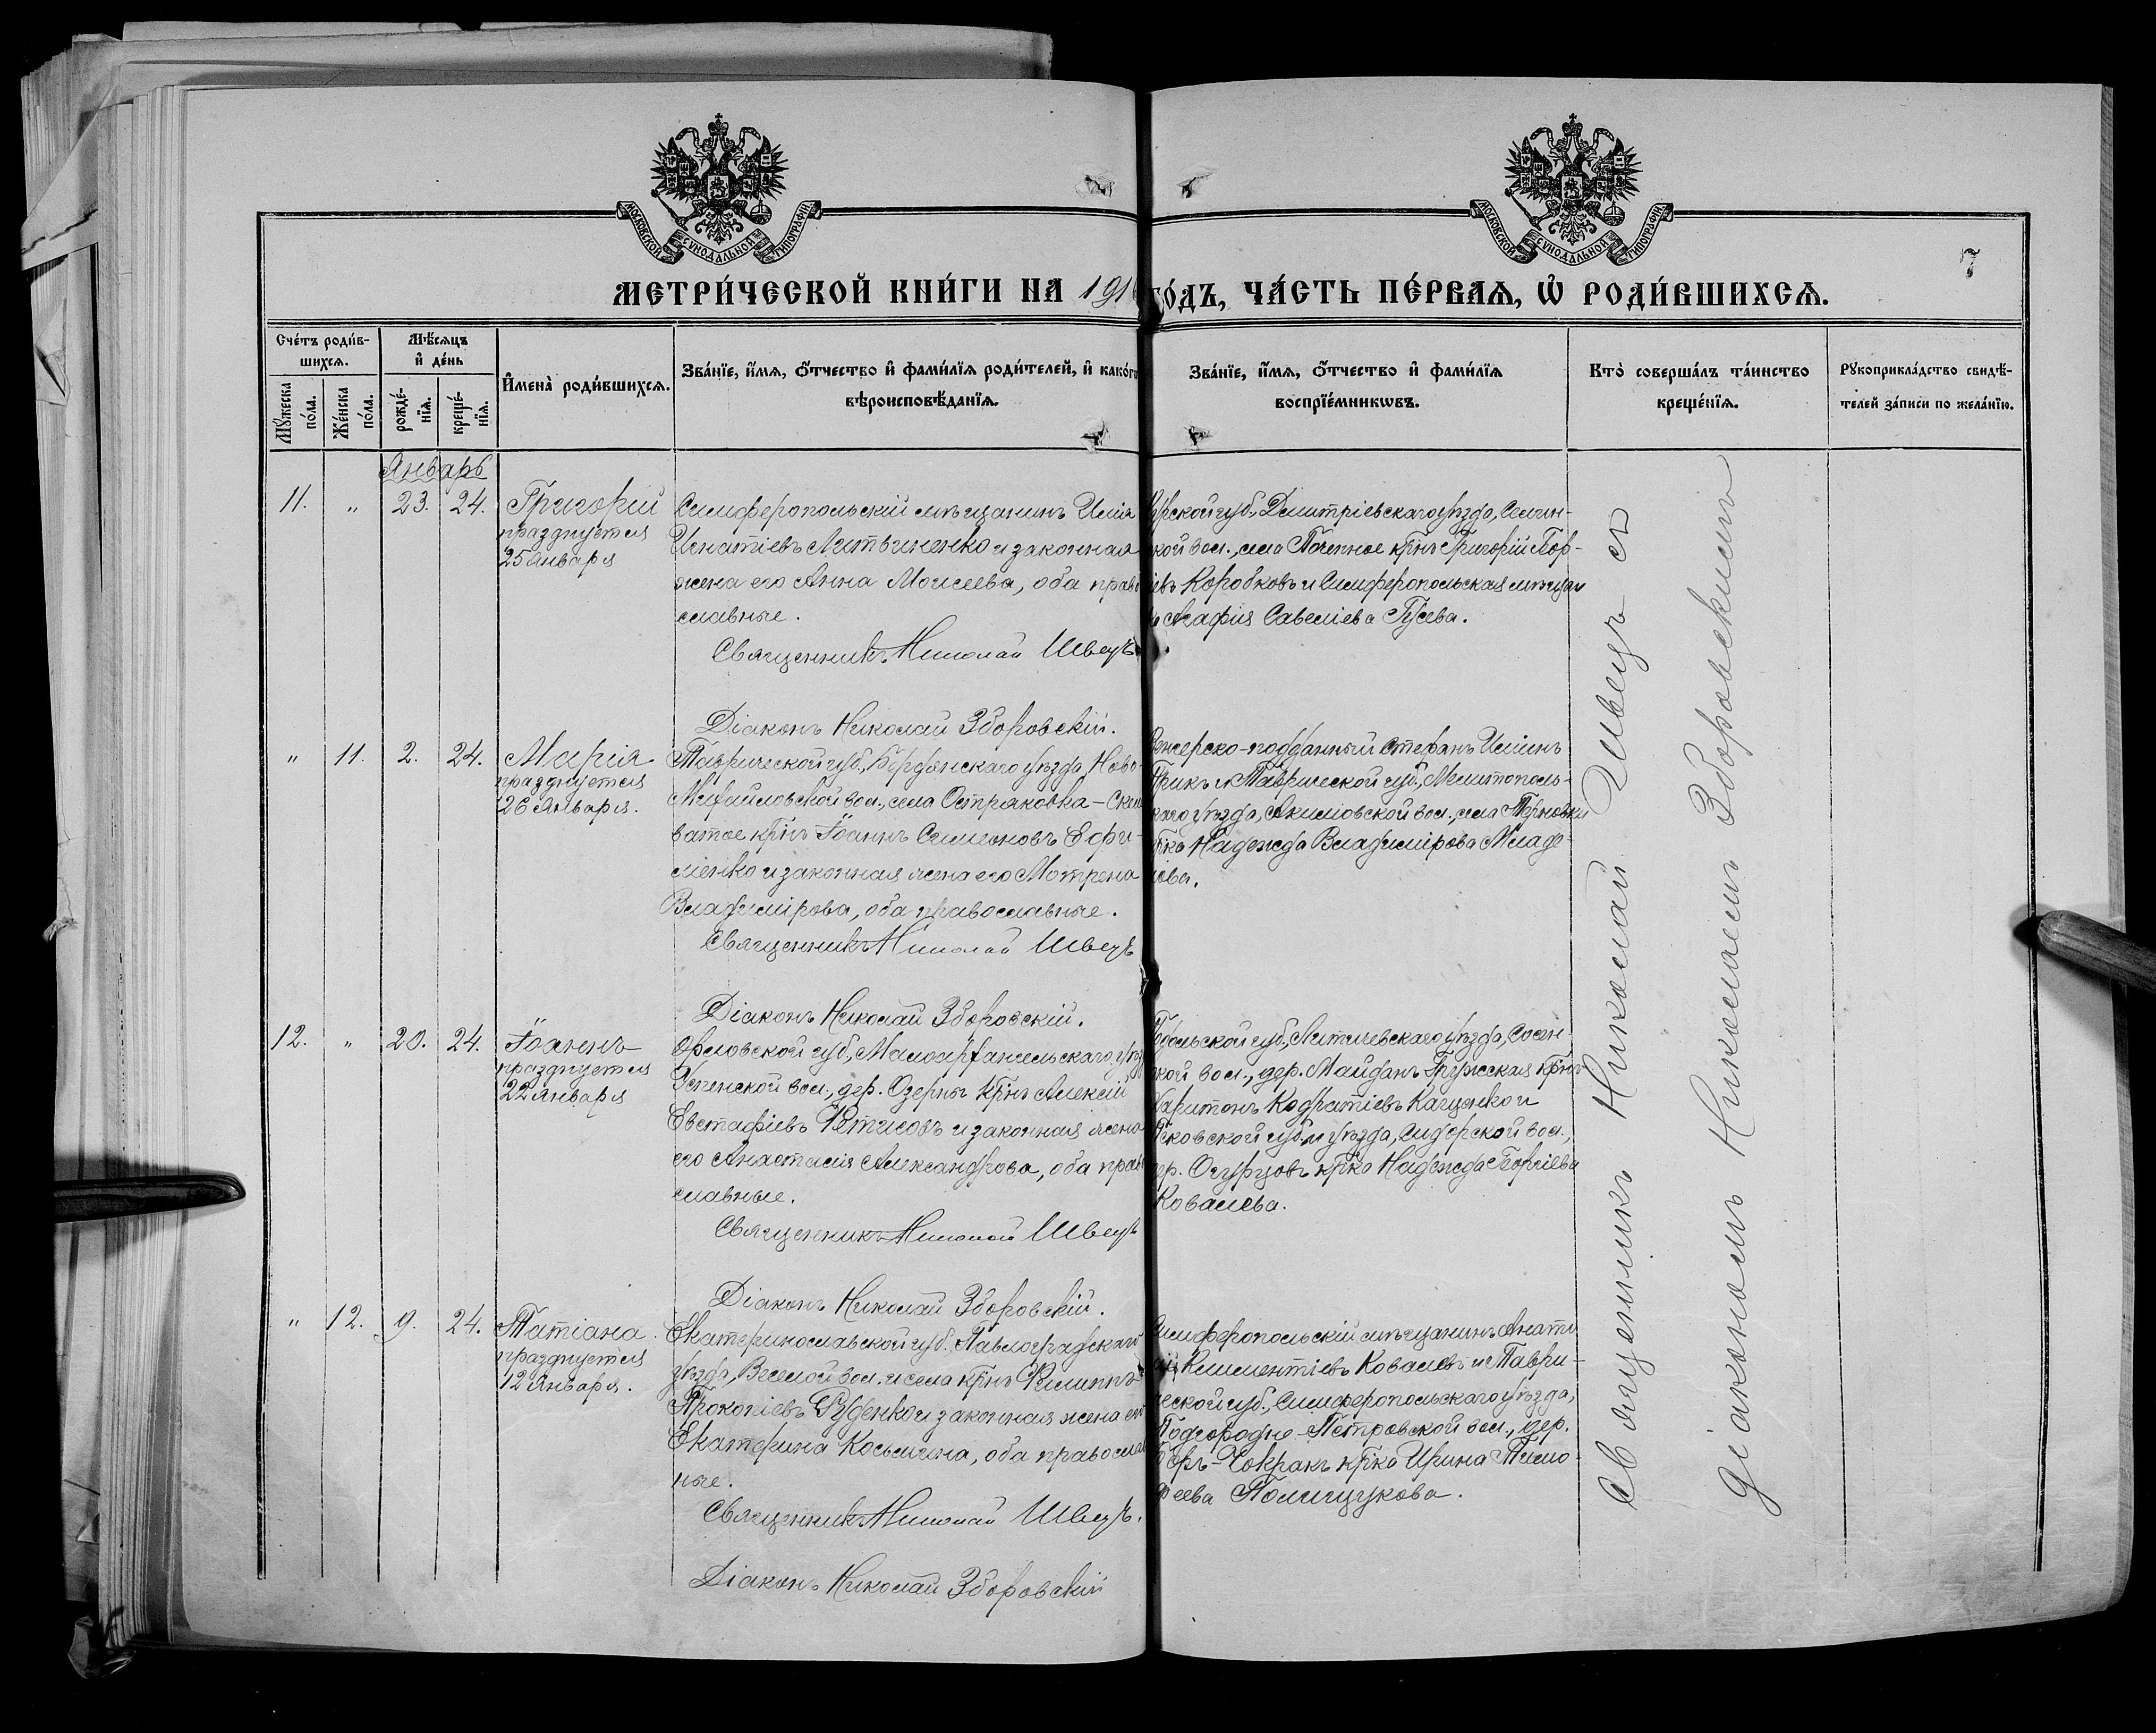 МОСКОВСКОЙ СѴНОДАЛЬНОЙ ТИПОГРАФІИ
МОСКОВСКОЙ СѴНОДАЛЬНОЙ ТИПОГРАФІИ
7
МЕТРИ́ЧЕСКОЙ КНИ́ГИ НА 191
ГО́ДЪ, ЧА́СТЬ ПЕ́РВАѦ, Ѡ҆ РОДИ́ВШИХСѦ.
Сче́тъ роди́в-
шихсѧ.
Мꙋ́жеска по́ла.
Же́нска по́ла.
Мѣ́сѧцъ
и҆ де́нь
рожде́-
нїѧ.
креще́-
нїѧ.
И҆мена̀ роди́вшихсѧ.
Зва́нїе, и҆́мѧ, ѻ҆́тчество и҆ фами́лїѧ роди́телей, и҆ како́гѡ
вѣроисповѣ́данїѧ.
Зва́нїе, и҆́мѧ, ѻ҆́тчество и҆ фами́лїѧ
воспрїе́мникѡвъ.
Кто̀ соверша́лъ та́инство
креще́нїѧ.
Рꙋкоприкла́дство свидѣ́-
телей за́писи по жела́нїю.
Январь
11. " 23. 24. Григорій
празднуется
25 Января
Симферопольскій мѣщанинъ Илія
Игнатіевъ Литвиненко и законная
жена его Анна Моисеева, оба право
славные.
Священникъ Николай Швецъ
Діаконъ Николай Зборовскій.
рской губ., Дмитріевскаго уѣзда,
кой вол., села крнъ Григорій
евъ Коробковъ и Симферопольская мѣщан
Агафія Савеліева Гусева.
" 11. 2. 24. Марія
празднуется
26 Января.
Таврической губ., Бердянскаго уѣзда Ново-
Михайловской вол., села Остряковка –
ватое крнъ Іоаннъ Симеоновъ Ефи-
менко и законная жена его Мотрена
Владимірова, оба православные.
Священникъ Николай Швецъ
Діаконъ Николай Зборовскій.
Венгерско-подданный Стефанъ
и Таврической губ., Мелитополь-
скаго уѣзда, Акимовской вол., села Терновки
крка Надежда Владимірова Младе-
нова.
12. " 20. 24. Іоаннъ
празднуется
22 Января
Орловской губ., Малоархангельскаго уѣз
Успенской вол., дер. Озерны крнъ Алексій
Евстафіевъ Фетисовъ и законная жена
его Анастасія Александрова, оба право
славные.
Священникъ Николай Швецъ
Діаконъ Николай Зборовскій.
Подольской губ., Литичевскаго уѣзда,
кой вол., дер. Майданъ крнъ
Харитонъ Кодратіевъ Кащенко и
Псковской губ. и уѣзда, Сидорской вол.,
дер. Огурцовъ крка Надежда Георгіева
Ковалева.
" 12. 9. 24. Татіана.
празднуется
12 Января.
Екатеринославской губ. Павлоградскаго
уѣзда, Веселой вол. и села крнъ Филиппъ
Прокопіевъ Руденко и законная жена его
Екатерина Косьмина, оба православ
ные.
Священникъ Николай Швецъ.
Діаконъ Николай Зборовскій
Симферопольскій мѣщанинъ Анато
лій Климентіевъ Ковалевъ и Таври-
ческой губ., Симферопольскаго уѣзда,
Подгородне-Петровской вол., дер.
Чокракъ крка Ирина Тимо-
феева Полищукова.
Священникъ Николай Швецъ съ
діакономъ Николаемъ Зборовскимъ